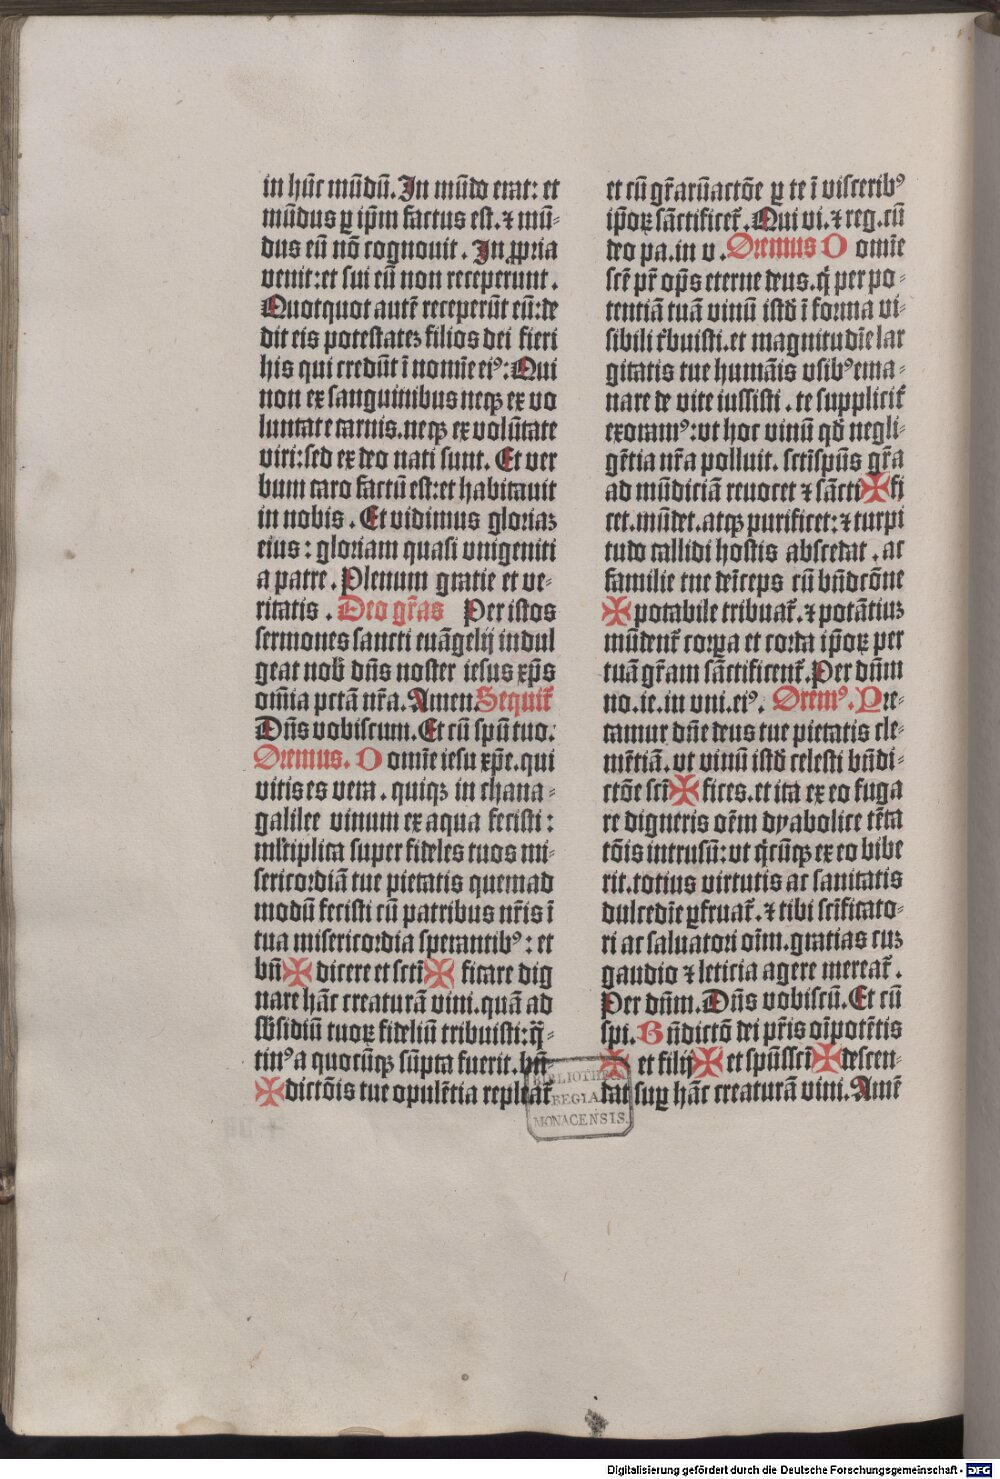 in hūc mūdū. In mūdo erat: et
mūdus ꝑ ip̄m factus est. ⁊ mū-
dus eū nō cognouit. In ꝓpria
venit: et sui eū non receperunt.
Quotquot autē receperūt eū: de
dit eis potestateꝫ filios dei fieri
his qui credūt ī nomīe eiꝰ: Qui
non ex sanguinibus neqꝫ ex vo
luntate carnis. neqꝫ ex volūtate
viri: sed ex deo nati sunt. Et ver
bum caro factū est: et habitauit
in nobis. Et vidimus gloriaꝫ
eius: gloriam quasi vnigeniti
a patre. Plenum gratie et ve-
ritatis. Deo gr̄as Per istos
sermones sancti euāgelij indul
geat nob̄ dn̄s noster iesus xp̄s
om̄ia pctā nr̄a. Amen. Sequit᷑
Dn̄s vobiscum. Et cū spū tuo.
Oremus. O omīe iesu xp̄e. qui
vitis es vera. quiqꝫ in chana-
galilee vinum ex aqua fecisti:
ml̄tiplica super fideles tuos mi-
sericordiā tue pietatis quemad
modū fecisti cū patribus nr̄is ī
tua misericordia sperantibꝰ: et
bn̄ ✠ dicere et sctī ✠ ficare dig
nare hāc creaturā vini. quā ad
sb̄sidiū tuoꝝ fideliū tribuisti: q̄-
tinꝰ a quocūqꝫ sūpta fuerit. bn̄-
✠ dictōis tue opulētia repleat᷑
et cū gr̄aruactōe ꝑ te ī visceribꝰ
ip̄oꝝ sāctificet᷑. Qui vi. ⁊ reg. cū
deo pa. in v. Oremus O omīe
scē pr̄ op̄s eterne deus. q̇ per po-
tentiā tuā vinū istd̄ ī forma vi-
sibili t̓buisti. et magnitudīe lar
gitatis tue humāis vsibꝰ ema-
nare de vite iussisti. te supplicit᷑
exoramꝰ: vt hoc vinū qd̄ negli-
gētia nr̄a polluit. sctīspūs gr̄a
ad mūdiciā reuocet ⁊ sācti ✠ fi
cet. mūdet. atqꝫ purificet: ⁊ turpi
tudo callidi hostis abscedat. ac
familie tue deīceps cū bn̄dcōne
✠ potabile tribuat᷑. ⁊ potātiuꝫ
mūdent᷑ corꝑa et corda ip̄oꝝ per
tuā gr̄am sāctificent᷑. Per dn̄m
no. ie. in vni. eiꝰ. Oremꝰ. Pre-
camur dn̄e deus tue pietatis cle-
mētiā. vt vinū istd̄ celesti bn̄di-
ctōe scī ✠ fices. et ita ex eo fuga
re digneris oēm dyabolice tēta
tōis intrusū: vt q̇cūqꝫ ex eo bibe
rit. totius virtutis ac sanitatis
dulcedīe ꝑfruat᷑. ⁊ tibi scīficato-
ri ac saluatori oīm. gratias cuꝫ
gaudio ⁊ leticia agere mereat᷑.
Per dn̄m. Dn̄s vobiscū. Et cū
spi. Bn̄dictō dei pr̄is oīpotētis
✠ et filij ✠ et spūsscī ✠ descen-
dat suꝑ hāc creaturā vini. Amē
BIBLIOTHECA
REGIA
MONACENSIS.
Digitalisierung gefördert durch die Deutsche Forschungsgemeinschaft - DFG